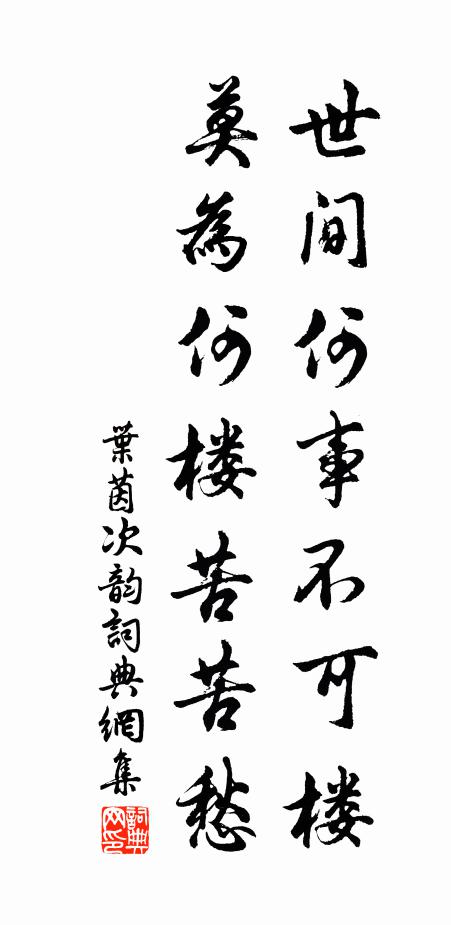 世间何事不可楼
莫為何楼苦苦愁
葉茵次韵詞典網集
詞典网印